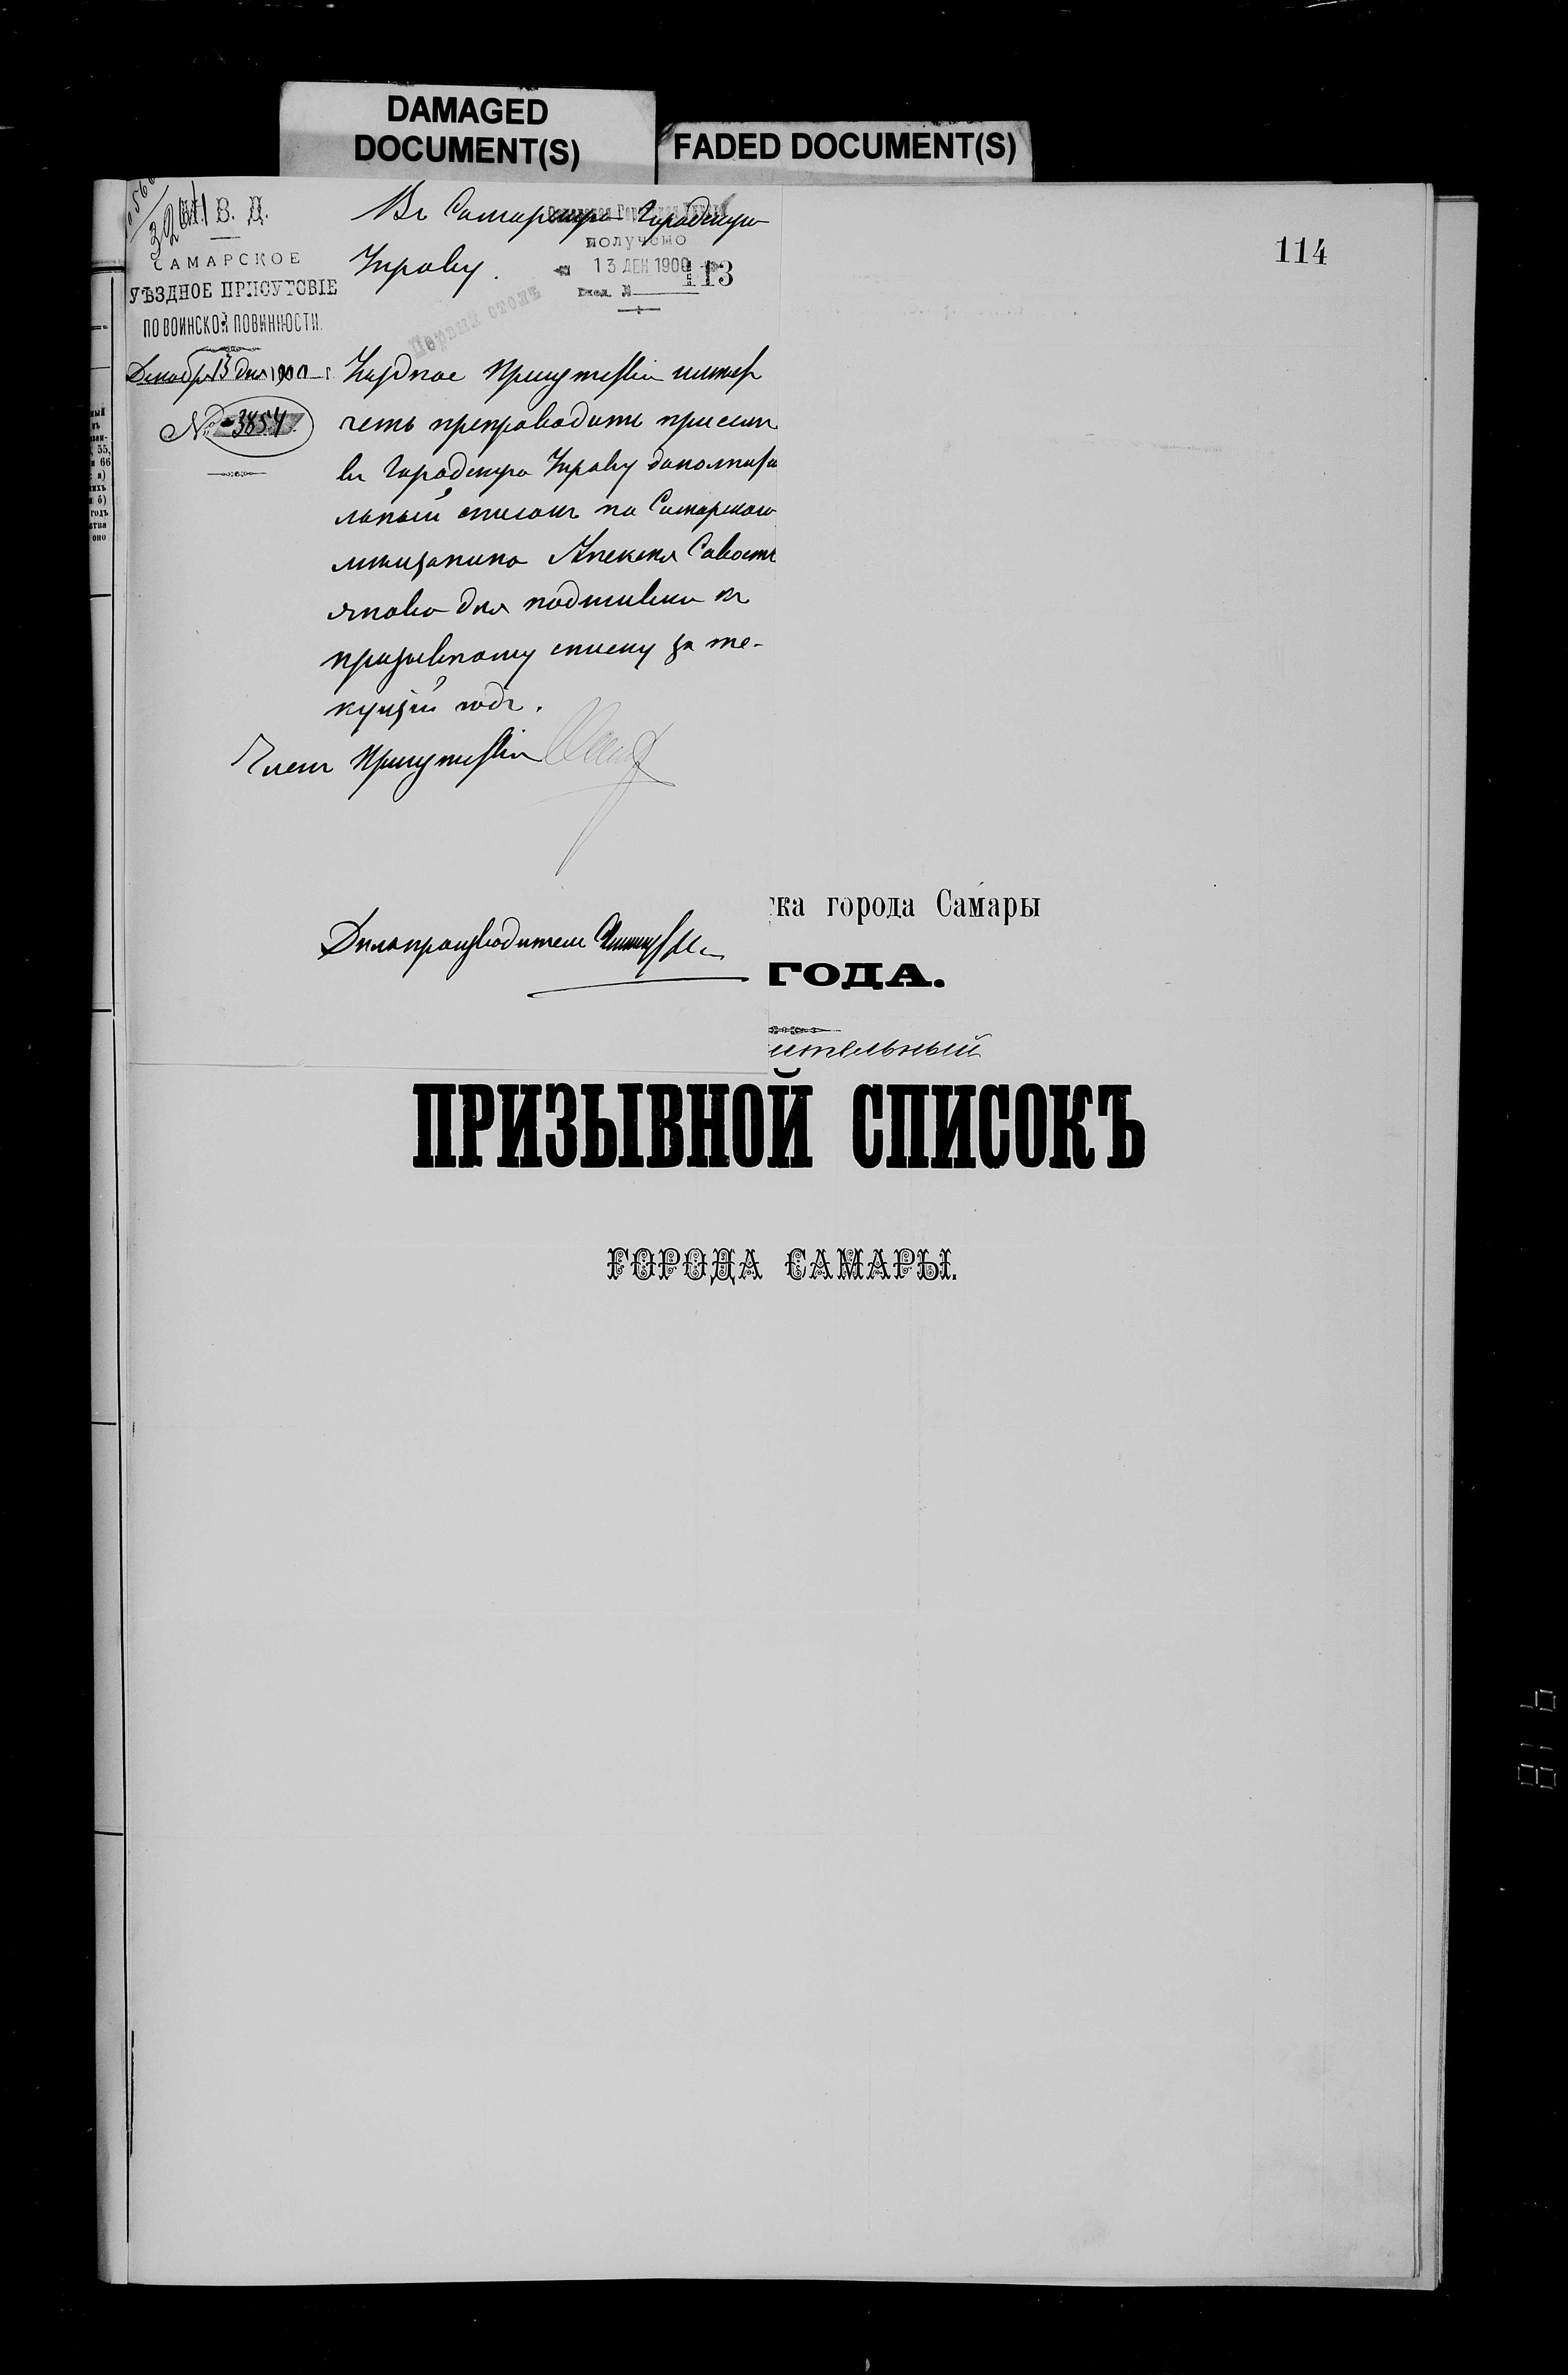 DAMAGED
DOCUMENT(S)
FADED DOCUMENT(S)
114
М. В. Д.
САМАРСКОЕ
УѢЗДНОЕ ПРИСУТСВІЕ
ПО ВОИНСКОЙ ПОВИННОСТИ.
Декабря 13 дня 1900 г.
№ 3854
Въ Самарскую Городскую
Управу.
получено
13 ДЕК 1900
Вход. №
113
Первый столъ
Уѣздное Присутствіе имѣетъ
честь препроводить при семъ
въ Городскую Управу дополни
льный списокъ на Самарского
мѣщанина Алексея Савость
янова для подшивки къ
призывному списку за те-
кущій годъ.
Членъ Присутствія
Дѣлопроизводитель
тка города Самары
ГОДА.
ительный
ПРИЗЫВНОЙ СПИСОКЪ
ГОРОДА САМАРЫ.